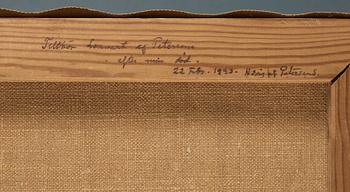 Tillhör Lennart af Petersens
efter min död.
22 Febr. 1993. H af Petersens